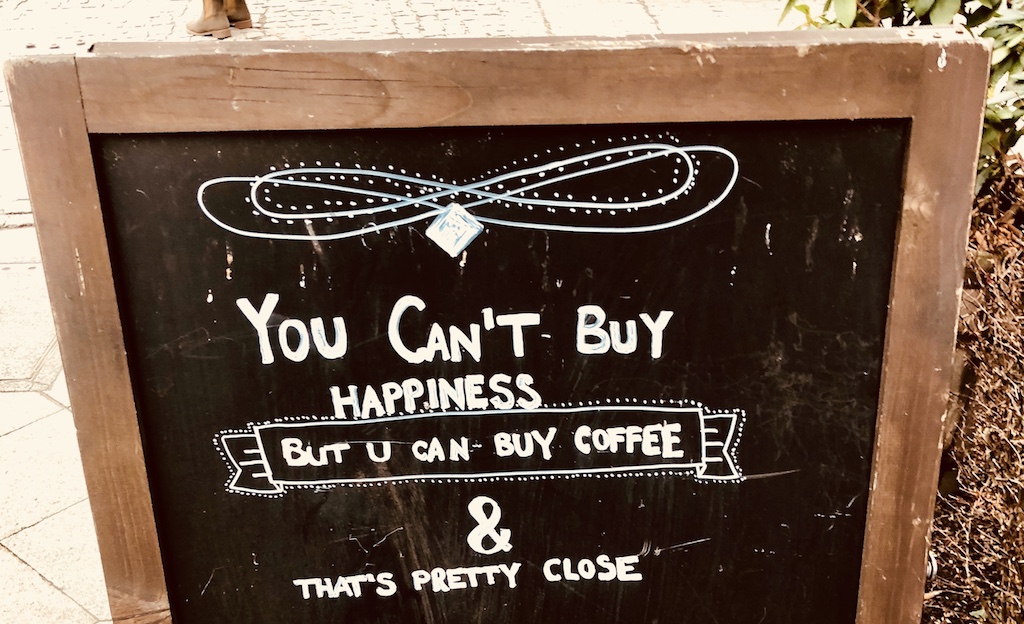 You Can't Buy
HAPPINESS
BUT U CAN BUY COFFEE
&
THAT'S PRETTY CLOSE